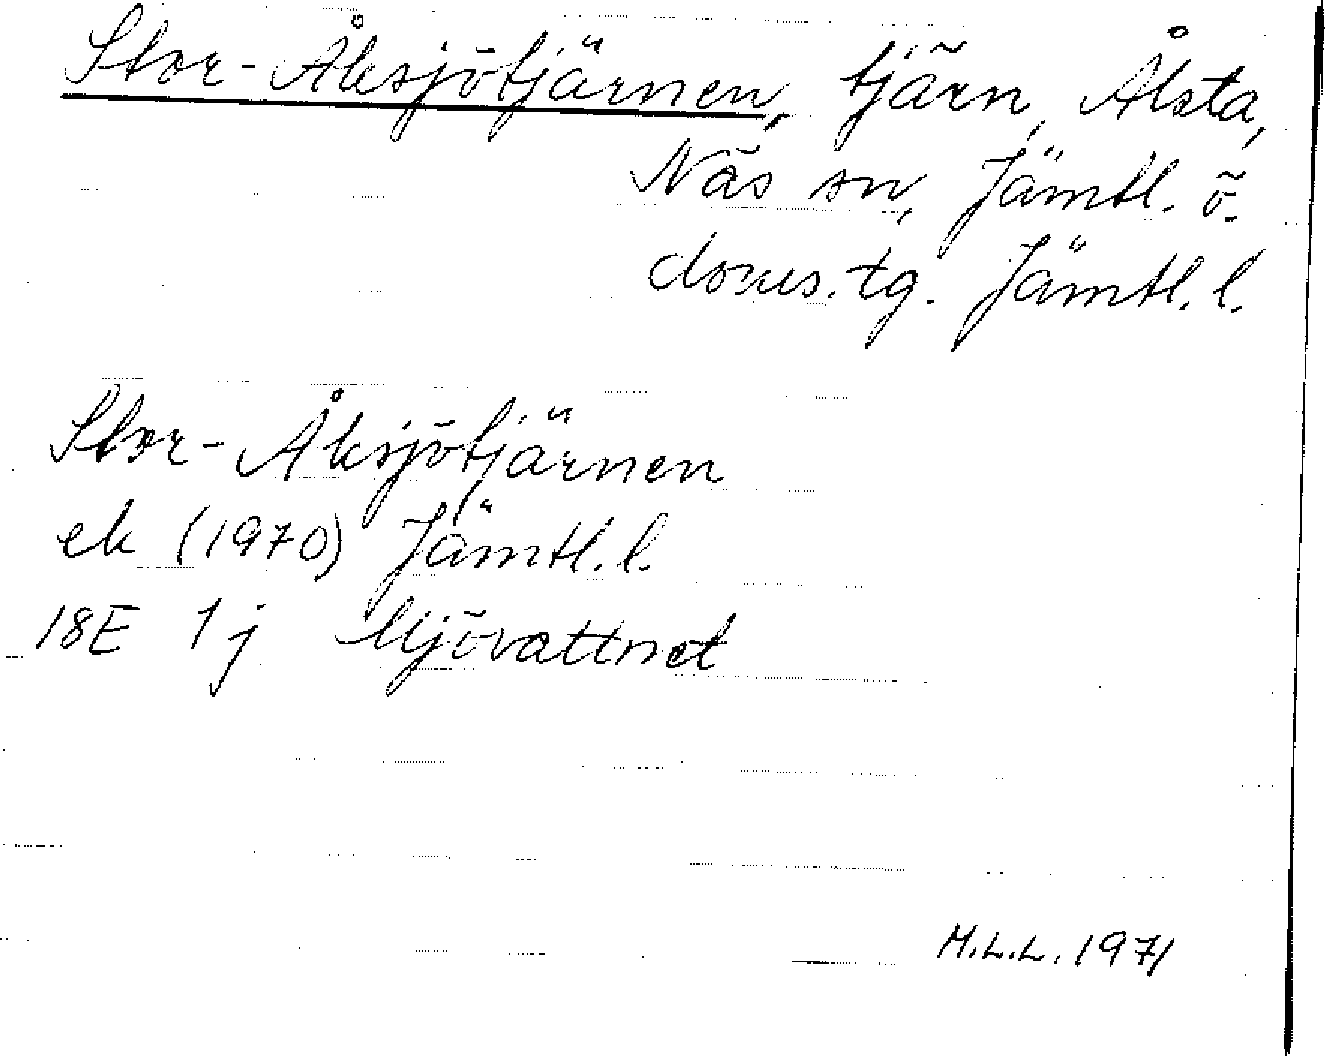 Stor-Åksjötjärnen, tjärn, Ålsta,
Näs sn, Jämtl. ö.
doms.tg. Jämtl. l.
Stor-Åksjötjärnen
ek (1970) Jämtl. l.
18E 1j Mjövattnet
M.L.L. 1971